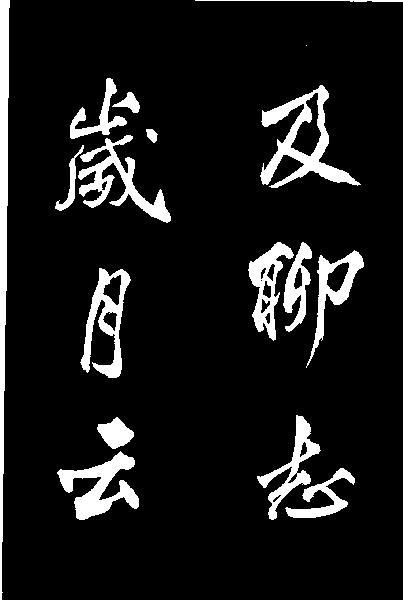 及聊志
歲月云